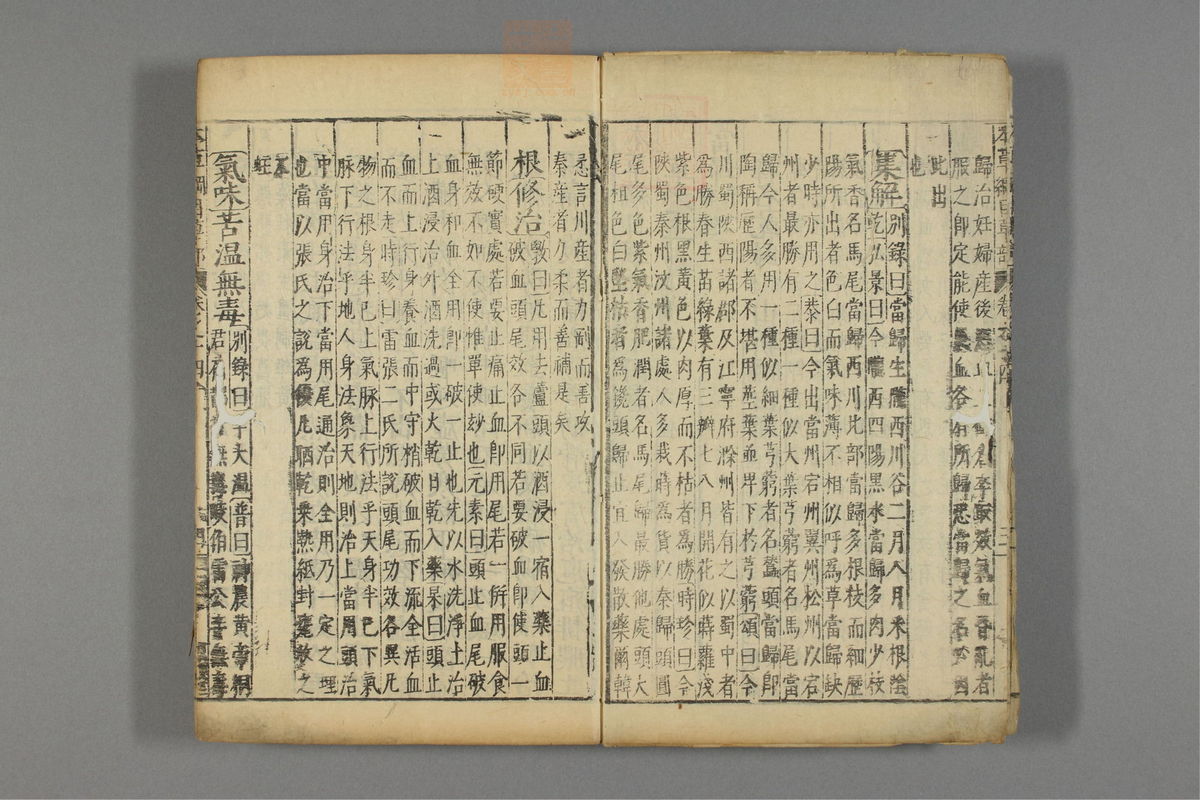 歸治妊婦産後惡血上衝倉卒取效氣血昏亂者
服之即定能使氣血各有所歸恐當歸之名必因
此出
也
集解別錄曰當歸生隴西川谷二月八月采根陰
乾弘景曰今隴西四陽黑水當歸多肉少枝
氣香名馬尾當歸西川北部當歸多根枝而細歷
陽所出者色白而氣味薄不相似呼為草當歸缺
少時亦用之恭曰今出當州宕州翼州松州以宕
州者最勝有二種一種似大葉芎藭者名馬尾當
歸今人多用一種似細葉芎藭者名蠶頭當歸即
陶稱歷陽者不堪用莖葉並卑下於芎藭頌曰今
川蜀陝西諸郡及江寧府滁州皆有之以蜀中者
為勝春生苗綠葉有三瓣七八月開花似蒔蘿淺
紫色根黑黃色以肉厚而不枯者為勝時珍曰今
陝蜀秦州汶州諸處人多栽蒔為貨以秦歸頭圓
尾多色紫氣香肥潤者名馬尾歸最勝他處頭大
尾粗色白堅枯者為鑱頭歸止宜入發散藥爾韓
㤅言川産者力剛而善攻
秦産者力柔而善補是矣
根修治斆曰凡用去蘆頭以酒浸一宿入藥止血
破血頭尾效各不同若要破血即使頭一
節硬實處若要止痛止血即用尾若一併用服食
無效不如不使惟單使玅也元素曰頭止血尾破
血身和血全用即一破一止也先以水洗淨土治
上酒浸治外酒洗過或火乾日乾入藥杲曰頭止
血而上行身養血而中守梢破血而下流全活血
而不走時珍曰雷張二氏所說頭尾功效各異凡
物之根身半已上氣脉上行法乎天身半已下氣
脉下行法乎地人身法象天地則治上當用頭治
中當用身治下當用尾通治則全用乃一定之理
也當以張氏之說為優凡晒乾乘熱紙封甕收之
不
蛀
氣味苦溫無毒別錄曰辛大溫普曰神農黃帝桐
君扁鵲甘無毒岐伯雷公辛無毒